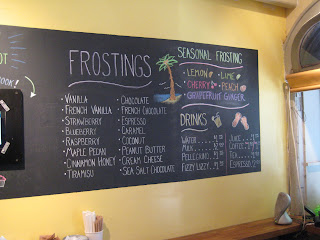 FROSTINGS
VANILLA
FRENCH VANILLA
STRAWBERRY
BLUEBERRY
RASPBERRY
MAPLE PECAN
CINNAMON HONEY
TIRAMISU
CHOCOLATE
FRENCH CHOCOLATE
ESPRESSO
CARAMEL
COCONUT
PEANUT BUTTER
CREAM CHEESE
SEA SALT CHOCOLATE
SEASONAL FROSTING
LEMON LIME
CHERRY PEACH
GRAPEFRUIT GINGER
DRINKS
WATER
MILK
PELLEGRINO
FIZZY LIZZY
JUICE
COFFEE
TEA
ESPRESSO
OT
OOK!